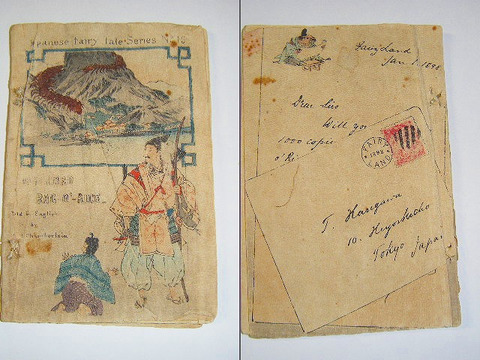 Japanese Fairy Tale Series
MY LORD
BAG-O'-RICE.
Told in English
by
Chamberlain
Fairy Land
Jan. 1.
Dear Sirs
Will you
1000 copies
o' Ri
FAIRY
LAND
T. Hasegawa
10. Hiyoshicho
Tokyo Japan.